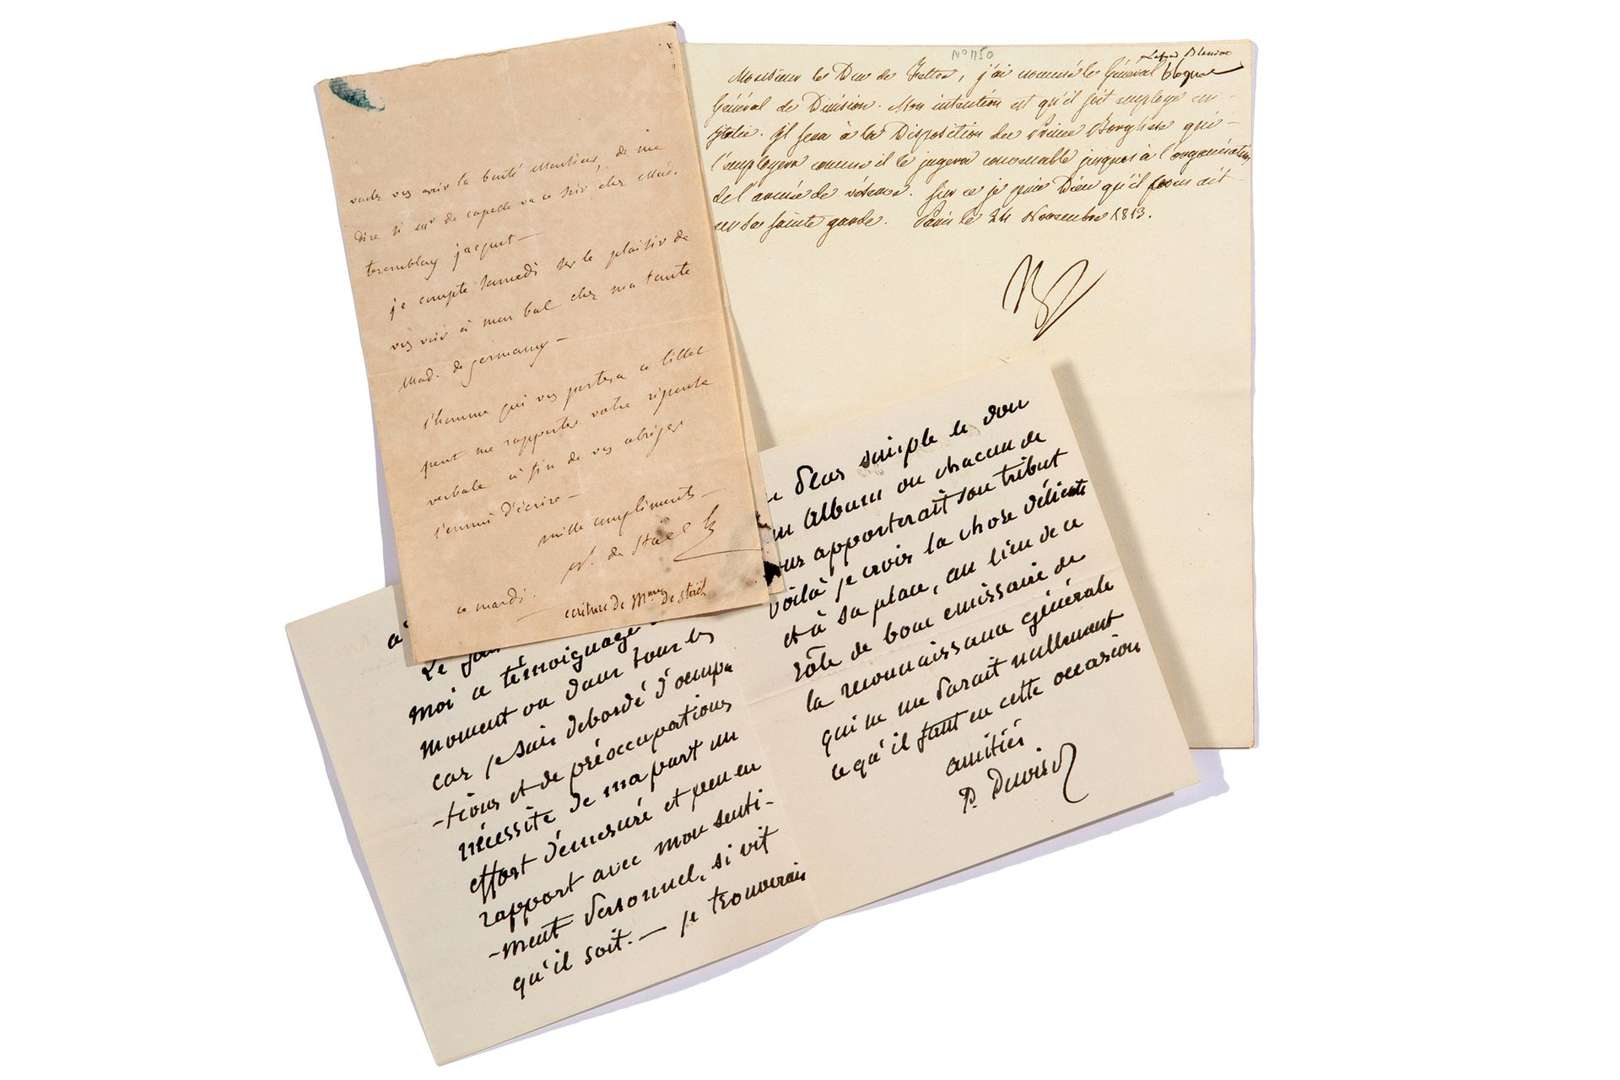 voulez vous avoir la bonté Monsieur, de me
dire si mr de capelle va ce soir chez Mad.
tremblay jacquet —
je compte samedi sur le plaisir de
vous voir à mon bal chez ma tante
Mad. de germany —
l'homme qui vous portera ce billet
peut me rapporter votre réponse
verbale à fin de vous abréger
l'ennui d'écrire —
mille compliments —
de Staël
ce mardi.
ecriture de Mme de Staël
N° 1150
Monsieur le Duc de Feltre, j'ai nommé le Général
Général de Division. Mon intention est qu'il soit employé en
Italie. Il sera à la Disposition du Prince Borghese qui
l'employera comme il le jugera convenable jusques à l'organisation
de l'armée de réserve. Sur ce je prie Dieu qu'il vous ait
en sa sainte garde. Paris le 24 Novembre 1813.
moi a témoignage
moment ou dans tous les
car je suis debordé d'occupa
-tions et de préoccupations
nécessite de ma part un
effort démesuré et peu en
rapport avec mon senti-
-ment personnel, si vif
qu'il soit. — je trouverais
plus simple le don
un Album ou chacun de
nous apporterait son tribut
Voilà je crois la chose délicate
et à sa place, au lieu de ce
rôle de bouc emissaire de
la reconnaissance générale
qui ne me parait nullement
ce qu'il faut en cette occasion
amitiés
P.